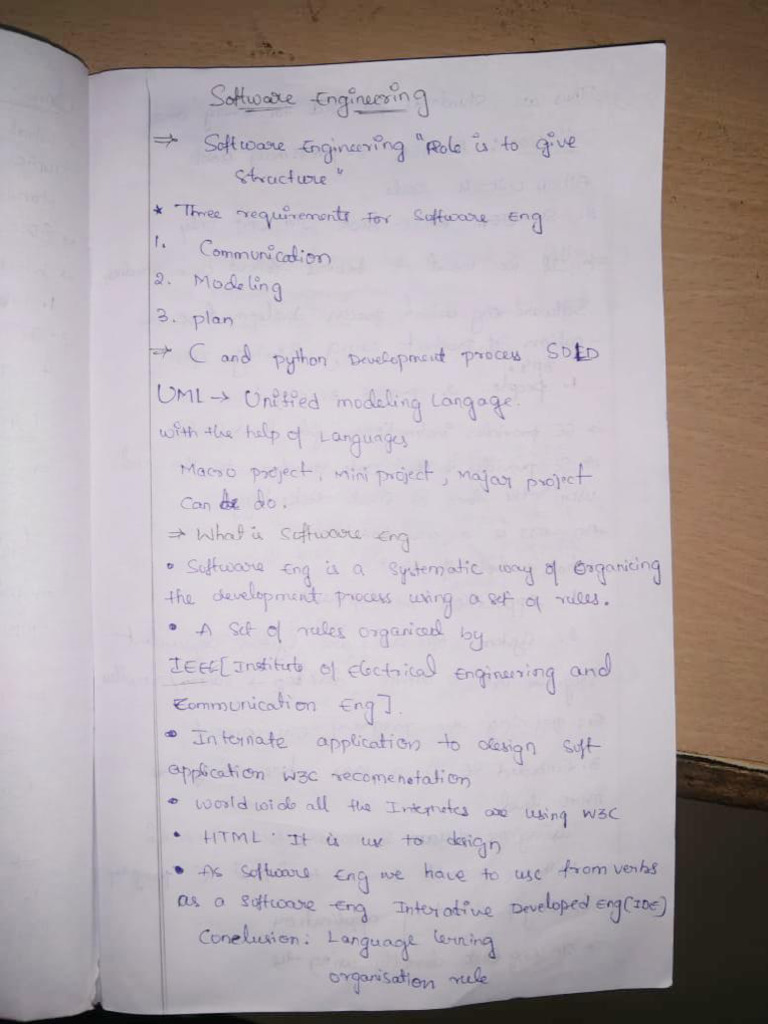 Software Engineering
⇒ Software Engineering "Role is to give
structure"
* Three requirements for Software Eng
1. Communication
2. Modeling
3. plan
→ C and python Development process
UML → Unified modeling Langage.
with the help of Languages
Macro project, mini project, Majar project
can do.
⇒ What is Software Eng
• Software Eng is a systematic way of Organicing
the development process using a set of rules.
• A Set of rules organiced by
IEEE[Institute of Electrical Engineering and
Communication Eng].
• Internate application to design Soft
application W3C recomenetation
• World wide all the Internetes are using W3C
• HTML: It is use to design
• As Software Eng we have to use from verbs
as a Software Eng Interative Developed Eng(IDE)
Conclusion: Language lerning
organisation rule